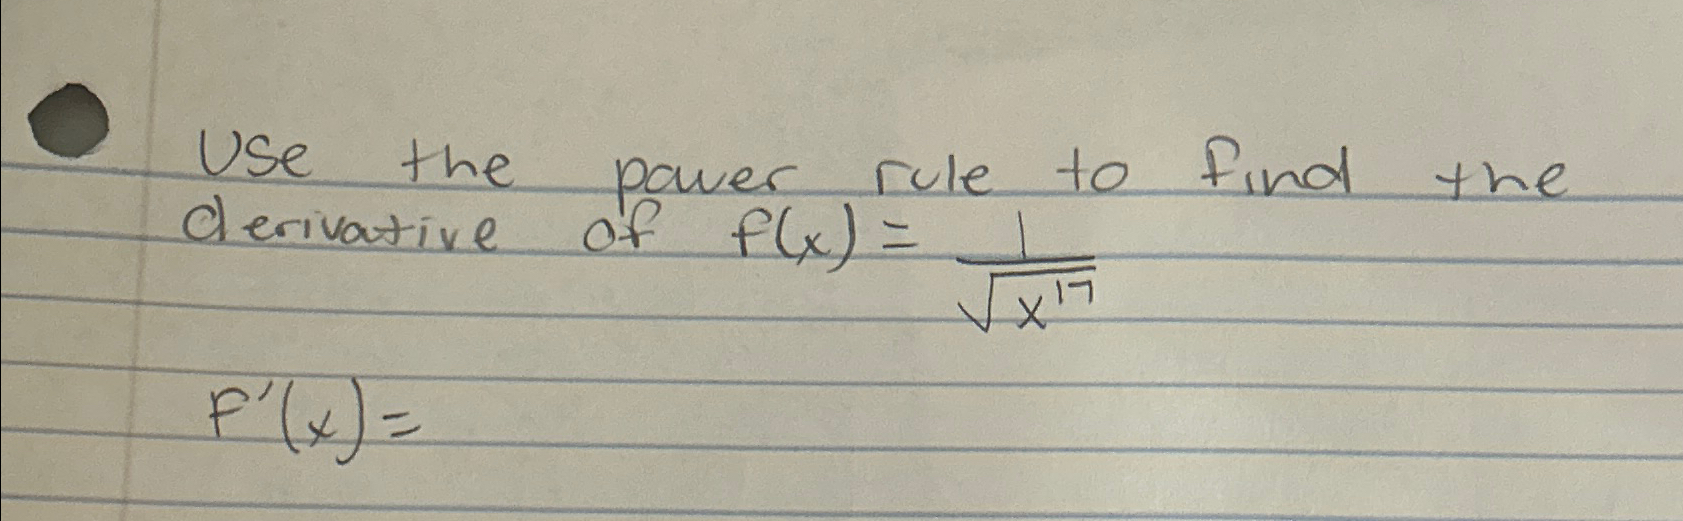 Use the power rule to find the
derivative of f(x) = 1/√x¹⁷
F'(x) =